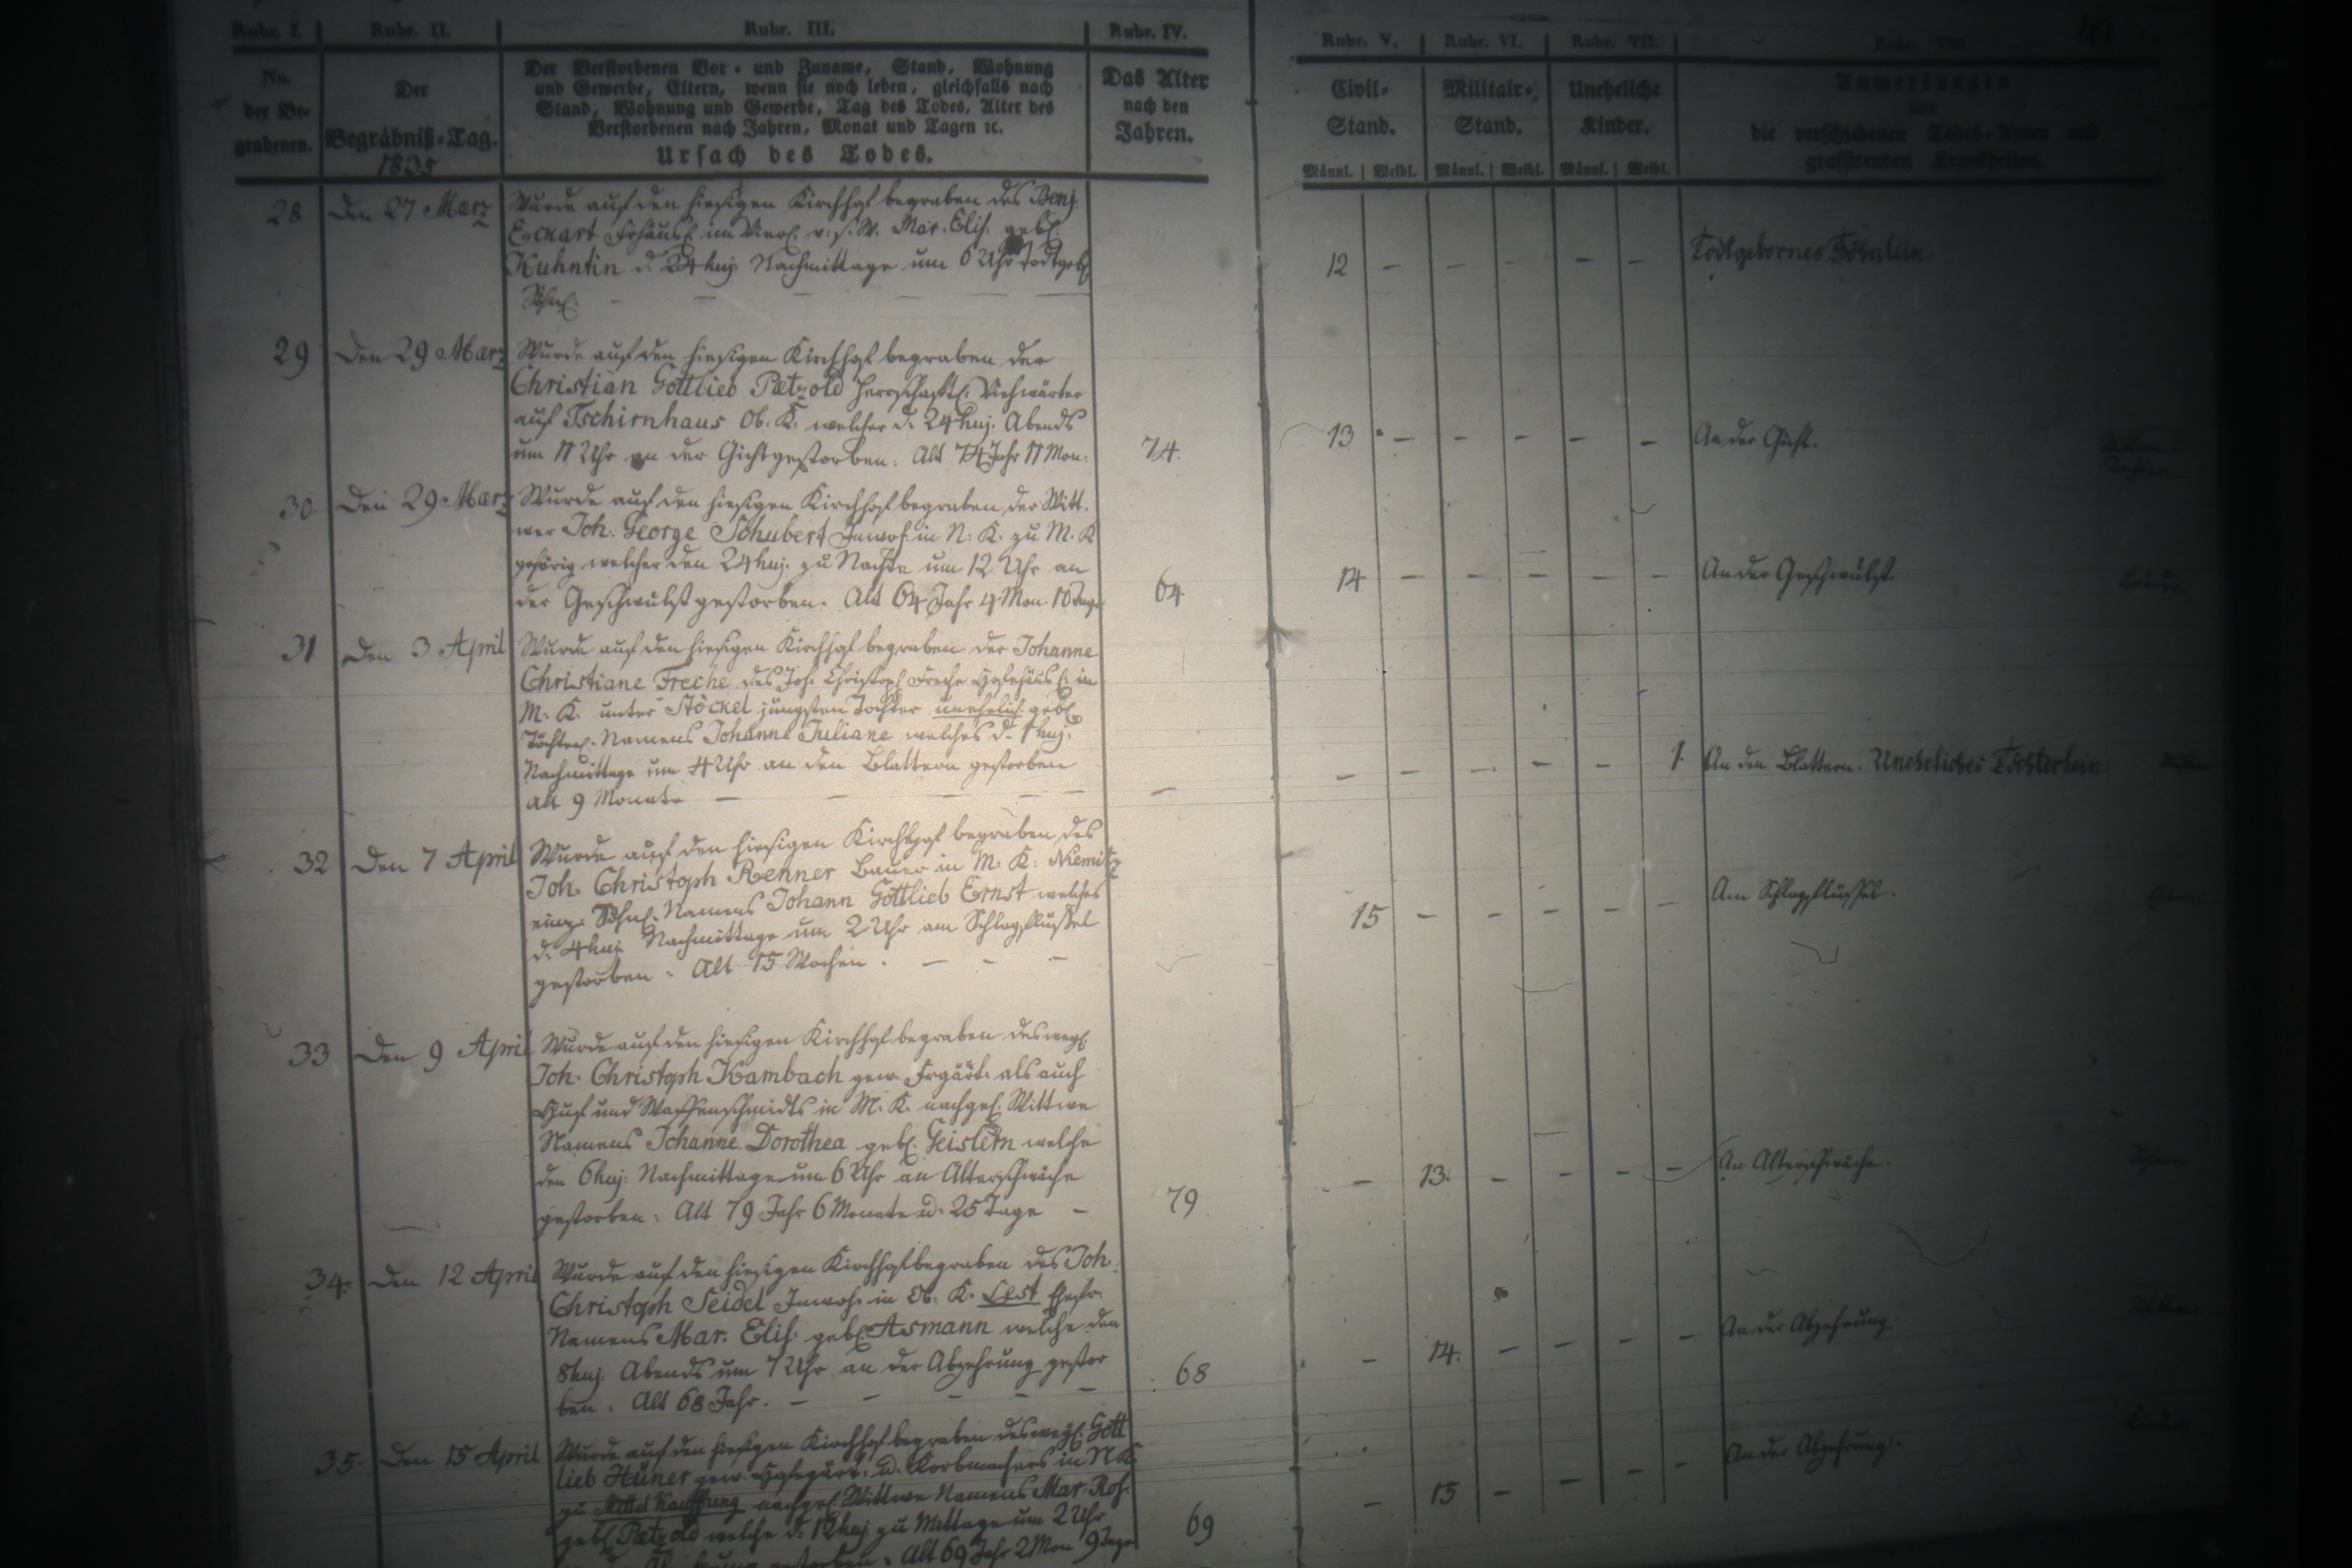 Rubr. I. Rubr. II. Rubr. III. Rubr. IV. Rubr. V. Rubr. VI. Rubr. VII. Rubr. VIII.
No.
der Be-
grabenen.
Der
Begräbniß-Tag.
1835
Der Verstorbenen Vor- und Zuname, Stand, Wohnung
und Gewerbe, Eltern, wenn sie noch leben, gleichfalls nach
Stand, Wohnung und Gewerbe, Tag des Todes, Alter des
Verstorbenen nach Jahren, Monat und Tagen ꝛc.
Ursach des Todes.
Das Alter
nach den
Jahren.
Civil-
Stand.
Militair-
Stand.
Uneheliche
Kinder.
Männl. Weibl. Männl. Weibl. Männl. Weibl.
Anmerkungen
über
die verschiedenen Todes-Arten und
grassirenden Krankheiten.
28 Den 27 März
Wurde auf den hiesigen Kirchhof begraben des Benj.
Eckart Frhäusl. im v. s. W. Mar. Elis. geb.
Kuhntin d. 24 huj. Nachmittage um 6 Uhr todtgeb.
Söhnl. – – – – –
12 – – – – – Todtgebornes Söhnlein
29 Den 29 März
Wurde auf den hiesigen Kirchhof begraben der
Christian Gottlieb Pätzold herrschaftl. Viehwärter
auf Tschirnhaus Ob. K. welcher d. 24 huj. Abends
um 11 Uhr an der Gicht gestorben. Alt 74 Jahr 11 Mon.
74. 13 – – – – – An der Gicht.
30. Den 29 März
Wurde auf den hiesigen Kirchhof begraben der Witt-
wer Joh. George Schubert Inwoh. in N. K. zu M. K
gehörig welcher den 24 huj. zu Nachts um 12 Uhr an
der Geschwulst gestorben. Alt 64 Jahr 4 Mon. 10 Tage
64 14 – – – – – An der Geschwulst.
31 Den 3 April
Wurde auf den hiesigen Kirchhof begraben der Johanne
Christiane Freche des Joh. Christoph Freche Hofehäusl. in
M. K. unter Stöckel jüngsten Tochter unehelich geb.
Töchterl. Namens Johanne Juliane welches d. 1 huj.
Nachmittage um 4 Uhr an den Blattern gestorben
alt 9 Monate – – – – –
– – – – – – 1. An den Blattern. Uneheliches Töchterlein
32 Den 7 April
Wurde auf den hiesigen Kirchhof begraben des
Joh. Christoph Renner Bauer in M. K. Niemitz
einz. Söhnl. Namens Johann Gottlieb Ernst welches
d. 4 huj. Nachmittage um 2 Uhr am Schlagflüssel
gestorben. Alt 15 Wochen. – – –
15 – – – – – Am Schlagflüssel.
33 Den 9 April
Wurde auf den hiesigen Kirchhof begraben des weyl.
Joh. Christoph Kambach gew. Frgärt. als auch
Huf und Waffenschmidts in M. K. nachgel. Wittwe
Namens Johanne Dorothea geb. Geislern welche
den 6 huj. Nachmittage um 6 Uhr an Alterschwäche
gestorben. Alt 79 Jahr 6 Monate u. 25 Tage –
79 – 13. – – – – An Alterschwäche.
34. Den 12 April
Wurde auf den hiesigen Kirchhof begraben des Joh.
Christoph Seidel Inwoh. in Ob. K. Lest Ehefr.
Namens Mar. Elis. geb. Asmann welche den
8 huj. Abends um 7 Uhr an der Abzehrung gestor
ben. Alt 68 Jahr. – – – – –
68 – 14. – – – – An der Abzehrung
35. Den 15 April
Wurde auf den hiesigen Kirchhof begraben des weyl. Gott
lieb Hüner gew. Hofegärt. u. Korbmachers in N K.
zu Mittel Kauffung nachgel. Wittwe Namens Mar. Ros.
geb. Pätzold welche d. 12 huj. zu Mittage um 2 Uhr
gestorben. Alt 69 Jahr 2 Mon 9 Tage
69 – 15 – – – – An der Abzehrung.